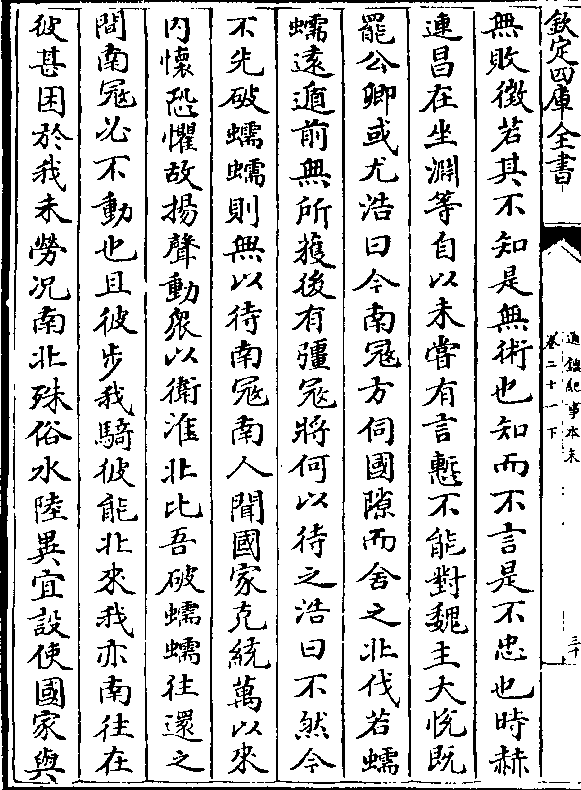 欽定四庫全書
通鑑紀事本末
卷二十一下
三十
無敗徵若其不知是無術也知而不言是不忠也時赫
連昌在坐淵等自以未嘗有言慙不能對魏主大悅既
罷公卿或尤浩曰今南冦方伺國隙而舍之北伐若蠕
蠕逺遁前無所獲後有彊冦將何以待之浩曰不然今
不先破蠕蠕則無以待南冦南人聞國家克統萬以來
内懷恐懼故揚聲動衆以衛淮北比吾破蠕蠕往還之
間南冦必不動也且彼步我騎彼能北來我亦南往在
彼甚困於我未勞況南北殊俗水陸異宜設使國家與